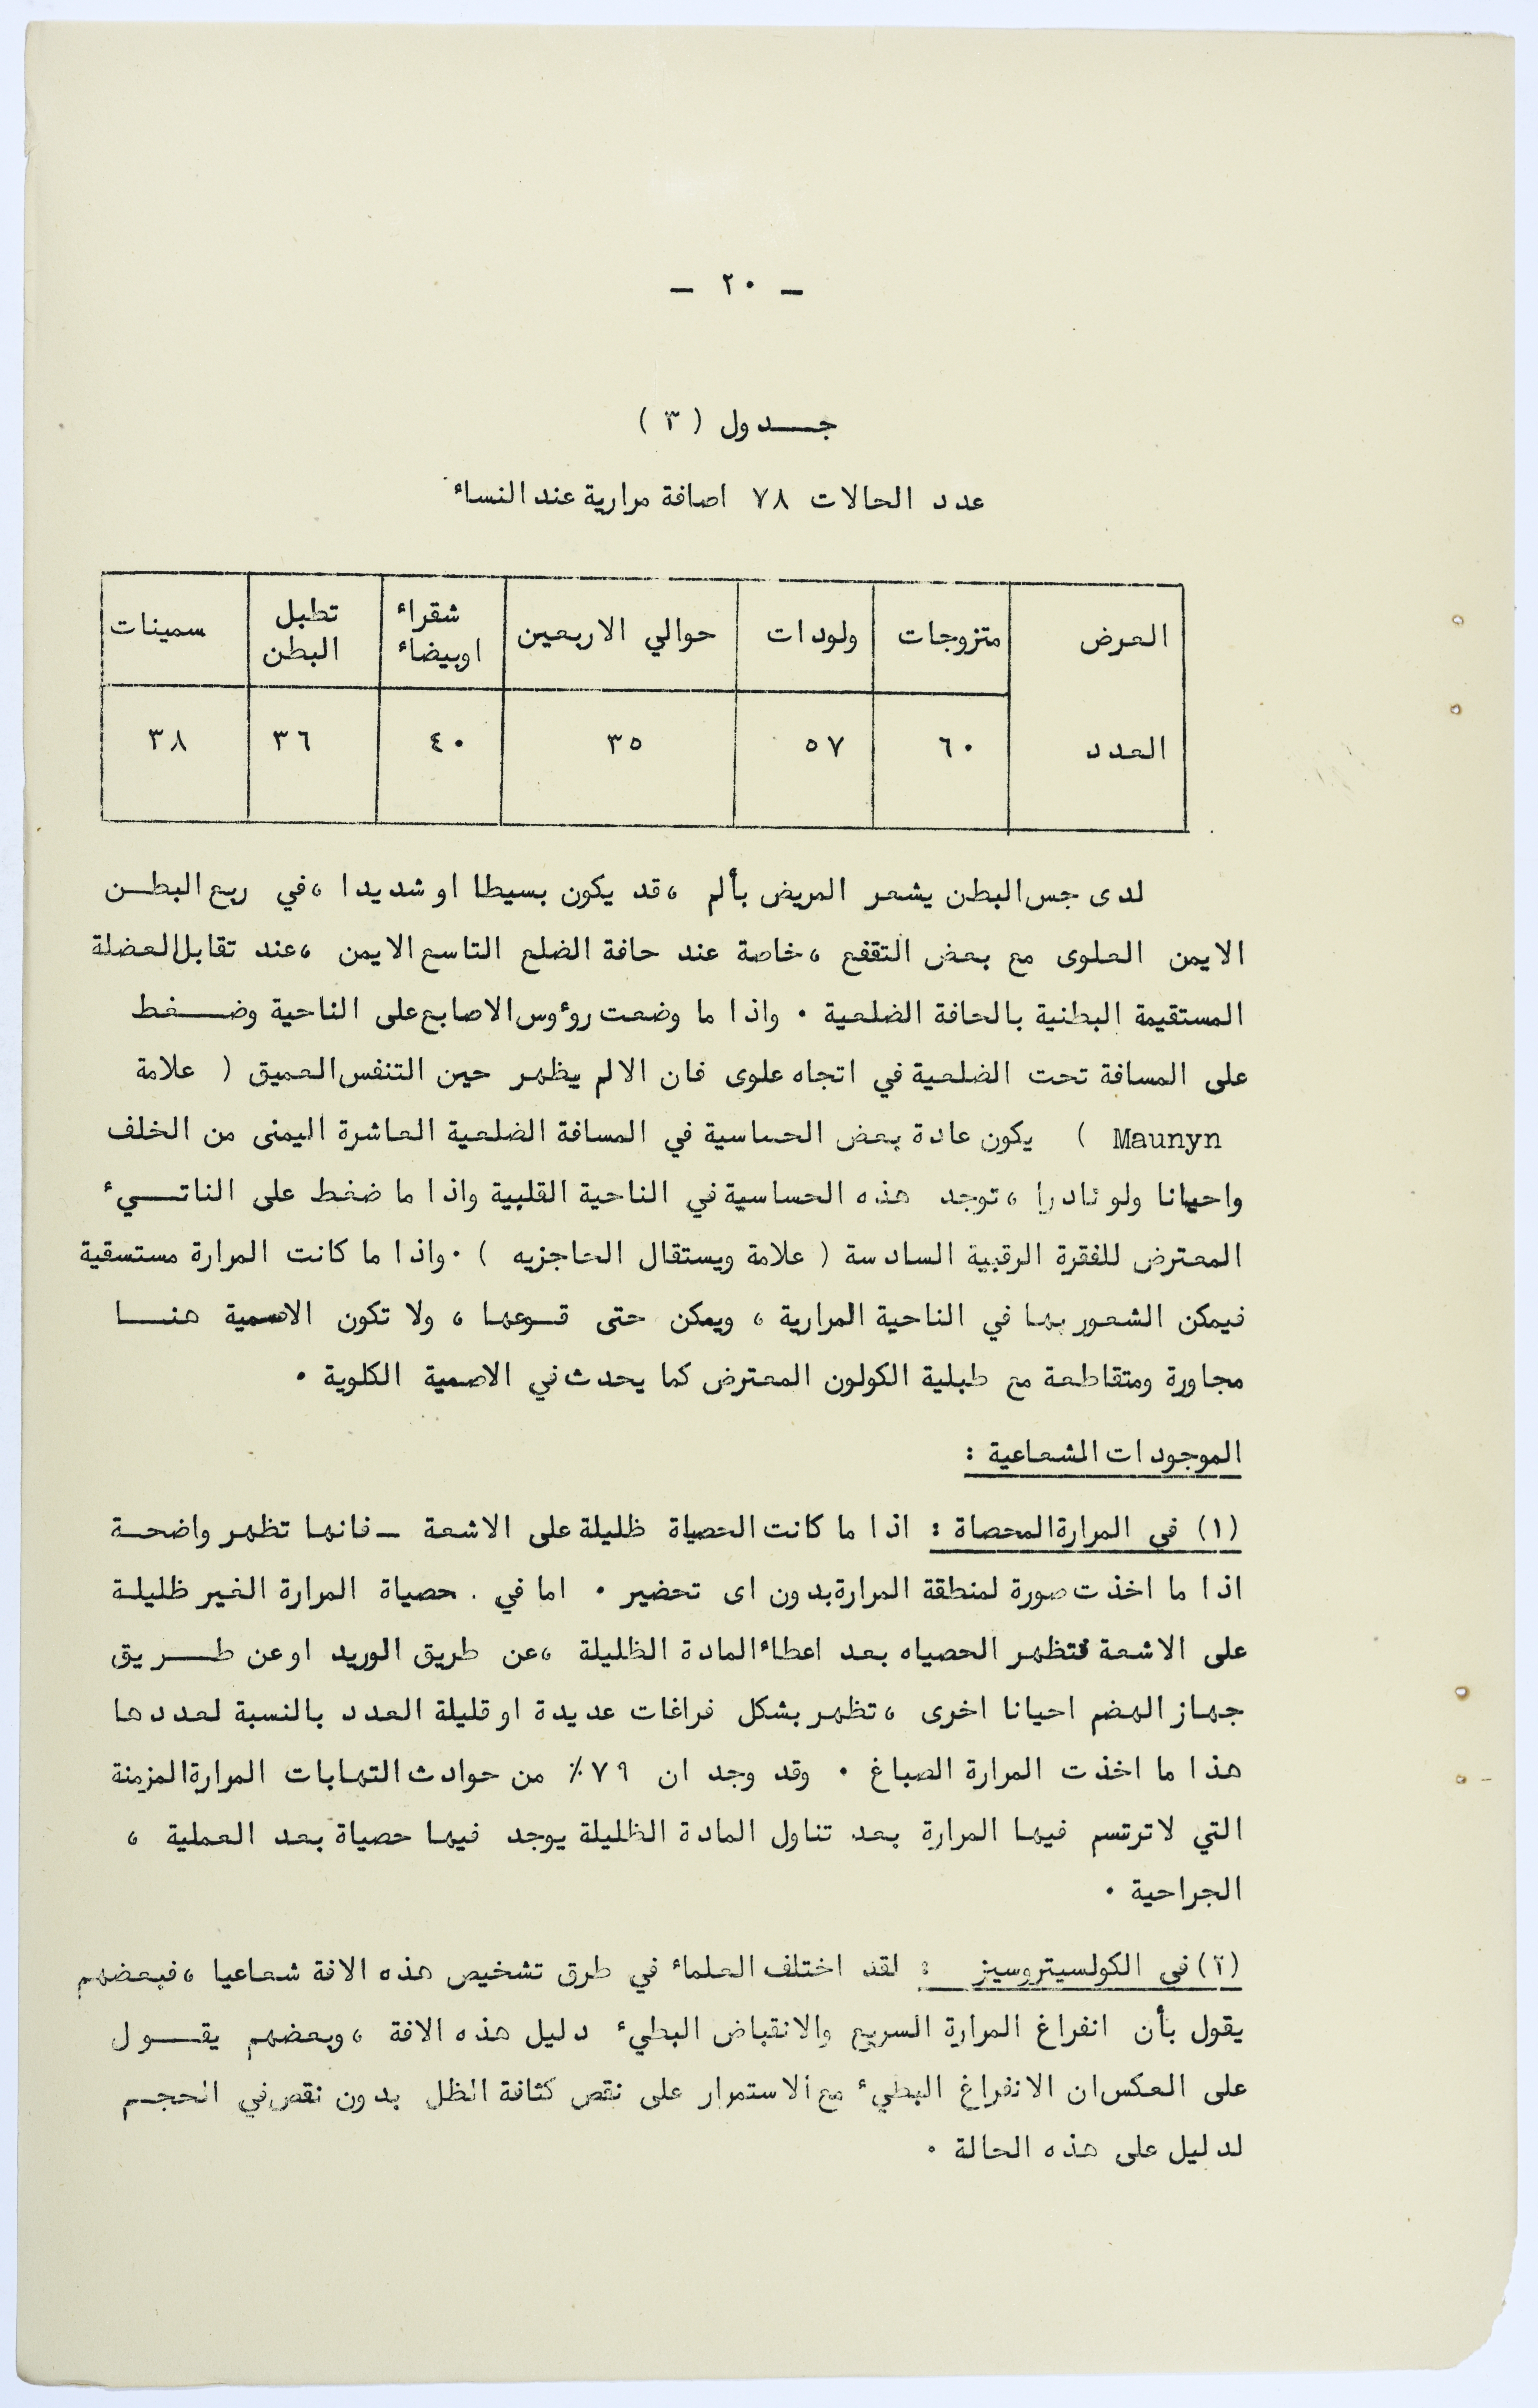 - ٢٠ -
جـــدول ( ٣ )
عدد الحالات ٧٨ اصافة مرارية عند النساء
العرض متزوجات ولودات حوالي الاربعين شقراء اوبيضاء تطبل البطن سمينات
العدد ٦٠ ٥٧ ٣٥ ٤٠ ٣٦ ٣٨
لدى جس البطن يشعر المريض بألم ، قد يكون بسيطا او شديدا ، في ربع البطــن
الايمن العلوى مع بعض التقفع ، خاصة عند حافة الضلع التاسع الايمن ، عند تقابل العضلة
المستقيمة البطنية بالحافة الضلعية . واذا ما وضعت رؤوس الاصابع على الناحية وضــغط
على المسافة تحت الضلعية في اتجاه علوى فان الالم يظهر حين التنفس العميق ( علامة
Maunyn ) يكون عادة بعض الحساسية في المسافة الضلعية العاشرة اليمنى من الخلف
واحيانا ولو نادرا ، توجد هذه الحساسية في الناحية القلبية واذا ما ضغط على الناتــيء
المعترض للفقرة الرقبية السادسة ( علامة ويستقال الحاجزيه ) . واذا ما كانت المرارة مستسقية
فيمكن الشعور بها في الناحية المرارية ، ويمكن حتى قــوعها ، ولا تكون الاصمية هنـــا
مجاورة ومتقاطعة مع طبلية الكولون المعترض كما يحدث في الاصمية الكلوية .
الموجودات الشعاعية :
(١) في المرارة المحصاة : اذا ما كانت الحصياة ظليلة على الاشعة ــ فانها تظهر واضحــة
اذا ما اخذت صورة لمنطقة المرارة بدون اى تحضير . اما في . حصياة المرارة الغير ظليلـة
على الاشعة فتظهر الحصياه بعد اعطاء المادة الظليلة ، عن طريق الوريد او عن طـــريق
جهاز الهضم احيانا اخرى ، تظهر بشكل فراغات عديدة او قليلة العدد بالنسبة لعددها
هذا ما اخذت المرارة الصباغ . وقد وجد ان ٧٩٪ من حوادث التهابات المرارة المزمنة
التي لا ترتسم فيها المرارة بعد تناول المادة الظليلة يوجد فيها حصياة بعد العملية ،
الجراحية .
(٢) في الكولسيتروسيز : لقد اختلف العلماء في طرق تشخيص هذه الافة شعاعيا ، فبعضهم
يقول بأن انفراغ المرارة السريع والانقباض البطيء دليل هذه الافة ، وبعضهم يقــــول
على العكس ان الانفراغ البطيء مع الاستمرار على نقص كثافة الظل بدون نقص في الحجــم
لدليل على هذه الحالة .